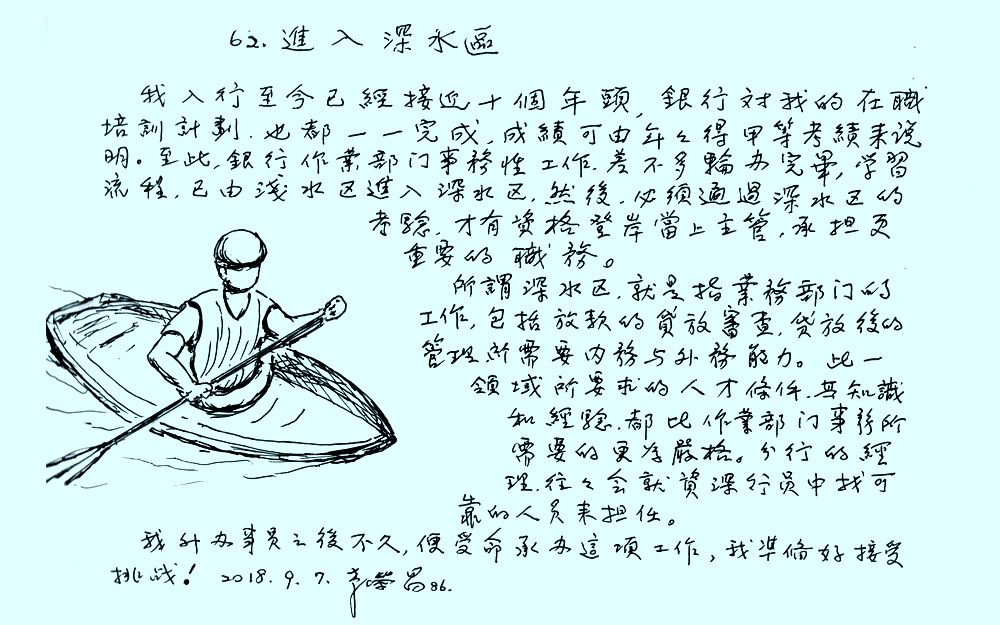 62. 進入深水區
我入行至今已經接近十個年頭, 銀行対我的在職
培訓計劃. 也都一一完成, 成績可由年々得甲等考績来说
明。至此, 銀行作業部门事務性工作. 差不多輪办完畢, 学習
流程, 已由淺水区進入深水区. 然後, 必須通過深水区的
考驗. 才有資格登岸當上主管, 承担更
重要的職務。
所謂深水区. 就是指業務部门的
工作, 包括放款的貸放審查, 贷放後的
管理所需要内務与外務能力。此一
領域所要求的人才條件. 其知識
和經驗. 都比作業部门事務所
需要的更为嚴格。分行的經
理. 往々会就資深行员中找可
靠的人员来担任。
我升办事员之後不久, 便受命承办這項工作, 我準俻好接受
挑战! 2018. 9. 7. 86.